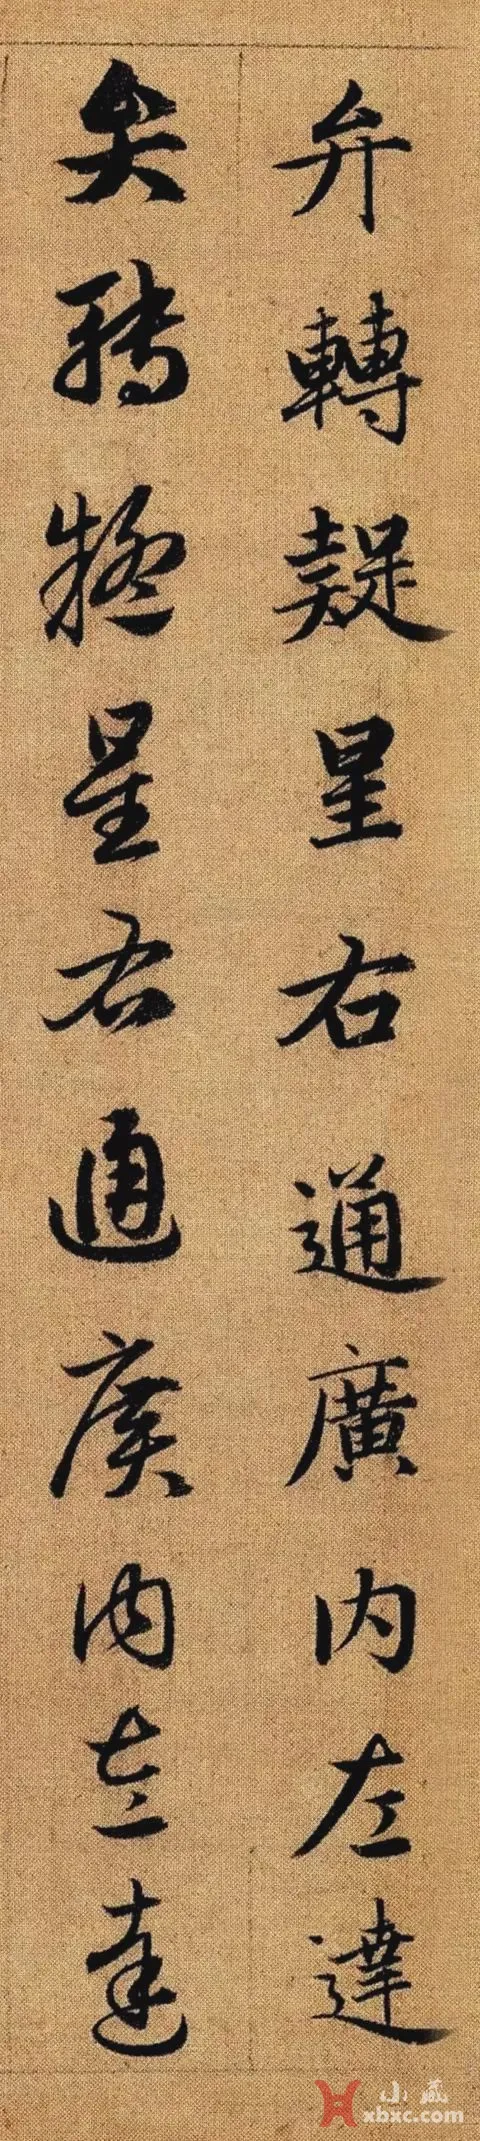 弁轉疑星右通廣内左達
弁轉疑星右通廣内左達
小藏
xbxc.com